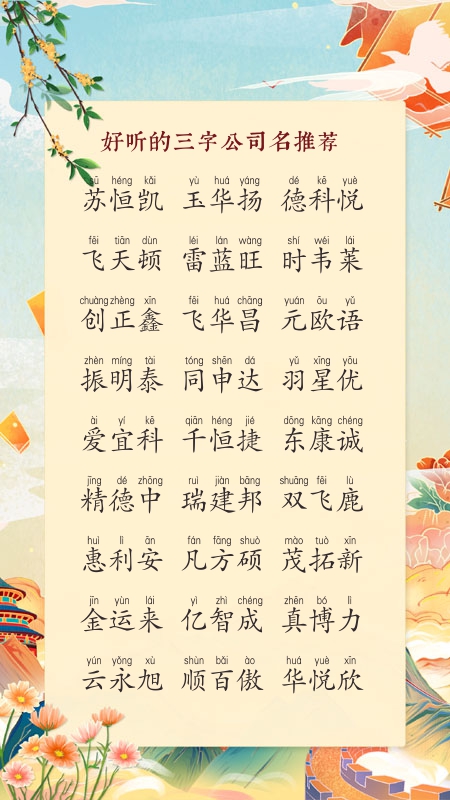 好听的三字公司名推荐
sū héng kǎi yù huá yáng dé kē yuè
苏恒凯 玉华扬 德科悦
fēi tiān dùn léi lán wàng shí wéi lái
飞天顿 雷蓝旺 时韦莱
chuàng zhèng xīn fēi huá chāng yuán ōu yǔ
创正鑫 飞华昌 元欧语
zhèn míng tài tóng shēn dá yǔ xīng yōu
振明泰 同申达 羽星优
ài yí kē qiān héng jié dōng kāng chéng
爱宜科 千恒捷 东康诚
jīng dé zhōng ruì jiàn bāng shuāng fēi lù
精德中 瑞建邦 双飞鹿
huì lì ān fán fāng shuò mào tuò xīn
惠利安 凡方硕 茂拓新
jīn yùn lái yì zhì chéng zhēn bó lì
金运来 亿智成 真博力
yún yǒng xù shùn bǎi ào huá yuè xīn
云永旭 顺百傲 华悦欣